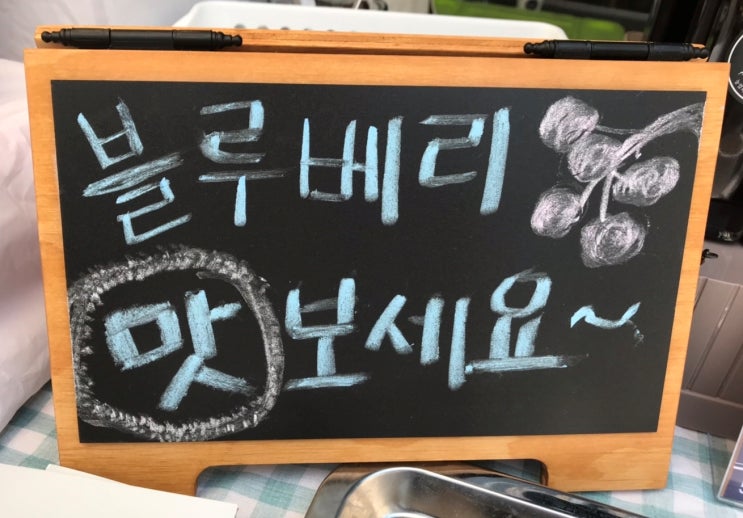 블루베리
맛보세요~